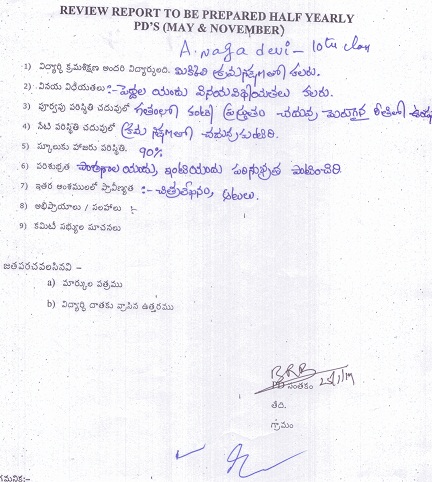 REVIEW REPORT TO BE PREPARED HALF YEARLY
PD'S (MAY & NOVEMBER)
A. Naga devi - 10th class
1) విద్యార్థి క్రమశిక్షణ అందరి విద్యార్థులది. మిక్కిలి క్రమశిక్షణలో కలరు.
2) వినయ విధేయతలు :- పెద్దల యందు వినయవిధేయతలు కలరు.
3) పూర్వపు పరిస్థితి చదువులో గతంలో కంటె ప్రస్తుతం చదువు మెరుగైన రీతిలో
4) నేటి పరిస్థితి చదువులో క్రమ శిక్షణలో చదువుకుంటుంది.
5) స్కూలుకు హాజరు పరిస్థితి. 90%
6) పరిశుభ్రత పాఠశాల యందు, ఇంటియందు పరిశుభ్రత పాటించెది
7) ఇతర అంశములలో ప్రావీణ్యత :- చిత్రలేఖనం, ఆటలు.
8) అభిప్రాయాలు / సలహాలు :-
9) కమిటీ సభ్యుల సూచనలు
జతపరచవలసినవి –
a) మార్కుల పత్రము
b) విద్యార్థి దాతకు వ్రాసిన ఉత్తరము
PD సంతకం
తేది.
గ్రామం
గమనిక:-